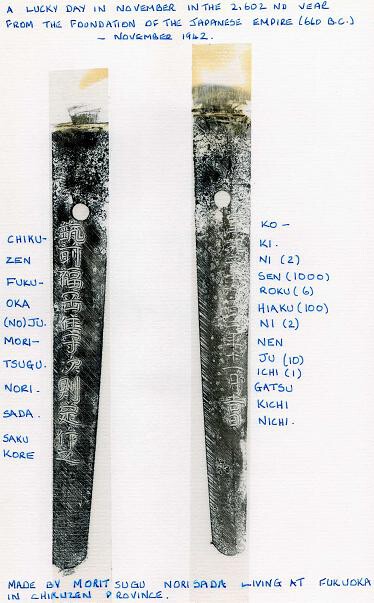 A LUCKY DAY IN NOVEMBER IN THE 2,602 ND YEAR
FROM THE FOUNDATION OF THE JAPANESE EMPIRE (660 B.C.)
- NOVEMBER 1942.
CHIKU-
ZEN
FUKU-
OKA
(NO) JU.
MORI-
TSUGU.
NORI-
SADA.
SAKU
KORE
前福
住守次則定
KO-
KI.
NI (2)
SEN (1000)
ROKU (6)
HIAKU (100)
NI (2)
NEN
JU (10)
ICHI (1)
GATSU
KICHI
NICHI.
MADE BY MORITSUGU NORISADA LIVING AT FUKUOKA
IN CHIKUZEN PROVINCE.